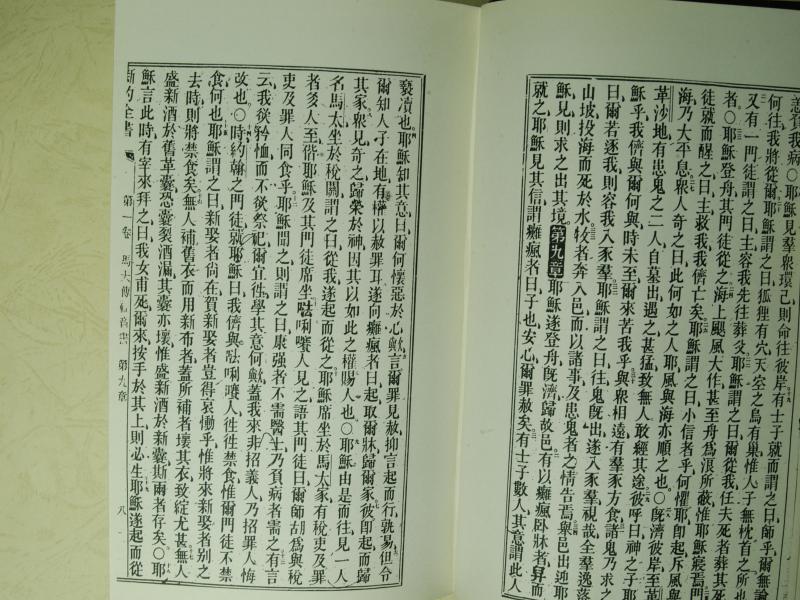 恙負我病○耶穌見羣衆環己則命往彼岸有士子就而謂之曰師乎爾無論
何往我將從爾耶穌謂之曰狐狸有穴天空之鳥有巢惟人子無枕首之所也
又有一門徒謂之曰主容我先往葬父耶穌謂之曰爾從我任夫死者葬其死
者○耶穌登舟其門徒從之海上颶風大作甚至舟爲浪所蔽惟耶穌寢焉門
徒就而醒之曰主救我我儕亡矣耶穌謂之曰小信者乎何懼耶卽起斥風與
海乃大平息衆人奇之曰此何如之人耶風與海亦順之也○旣濟彼岸至革
革沙地有患鬼之二人自墓出遇之甚猛致無人敢經其途彼呼曰神之子耶
穌乎我儕與爾何與時未至爾來苦我乎與衆相遠有羣豕方食諸鬼乃求之
曰爾若逐我則容我入豕羣耶穌謂之曰往鬼旣出遂入豕羣視哉全羣逸落
山坡投海而死於水牧者奔入邑而以諸事及患鬼者之情告焉舉邑出迎耶
穌見則求之出其境第九章耶穌遂登舟旣濟歸故邑有以癱瘋臥牀者舁而
就之耶穌見其信謂癱瘋者曰子也安心爾罪赦矣有士子數人其意謂此人
褻瀆也耶穌知其意曰爾何懷惡於心歟言爾罪見赦抑言起而行孰易但令
爾知人子在地有權以赦罪耳遂向癱瘋者曰起取爾牀歸爾家彼卽起而歸
其家衆見奇之歸榮於神因其以如此之權賜人也○耶穌由是而往見一人
名馬太坐於稅關謂之曰從我遂起而從之耶穌席坐於馬太家有稅吏及罪
者多人至偕耶穌及其門徒席坐𠵽唎㘔人見之語其門徒曰爾師胡爲與稅
吏及罪人同食乎耶穌聞之則謂之曰康强者不需醫士乃負病者需之有言
云我欲矜恤而不欲祭祀爾宜徃學其意何歟蓋我來非招義人乃招罪人悔
改也○時約翰之門徒就耶穌曰我儕與𠵽唎㘔人徃徃禁食惟爾門徒不禁
食何也耶穌謂之曰新娶者尙在賀新娶者豈得哀慟乎惟將來新娶者别之
去時則將禁食矣無人補舊衣而用新布者蓋所補者壞其衣致綻尤甚無人
盛新酒於舊革囊恐囊裂酒漏其囊亦壞惟盛新酒於新囊斯兩者存矣○耶
穌言此時有宰來拜之曰我女甫死爾來按手於其上則必生耶穌遂起而從
新約全書 第一卷 馬太傳福音書 第九章 八